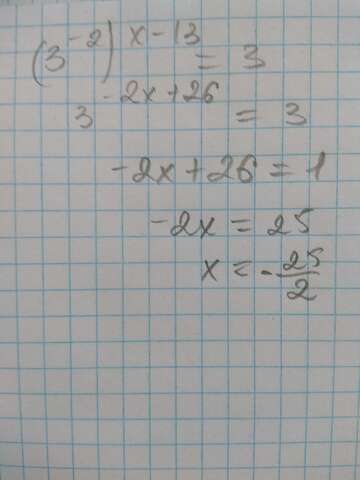 (3^{-2})^{x-13} = 3
3^{-2x+26} = 3
-2x+26 = 1
-2x = 25
x = -\frac{25}{2}